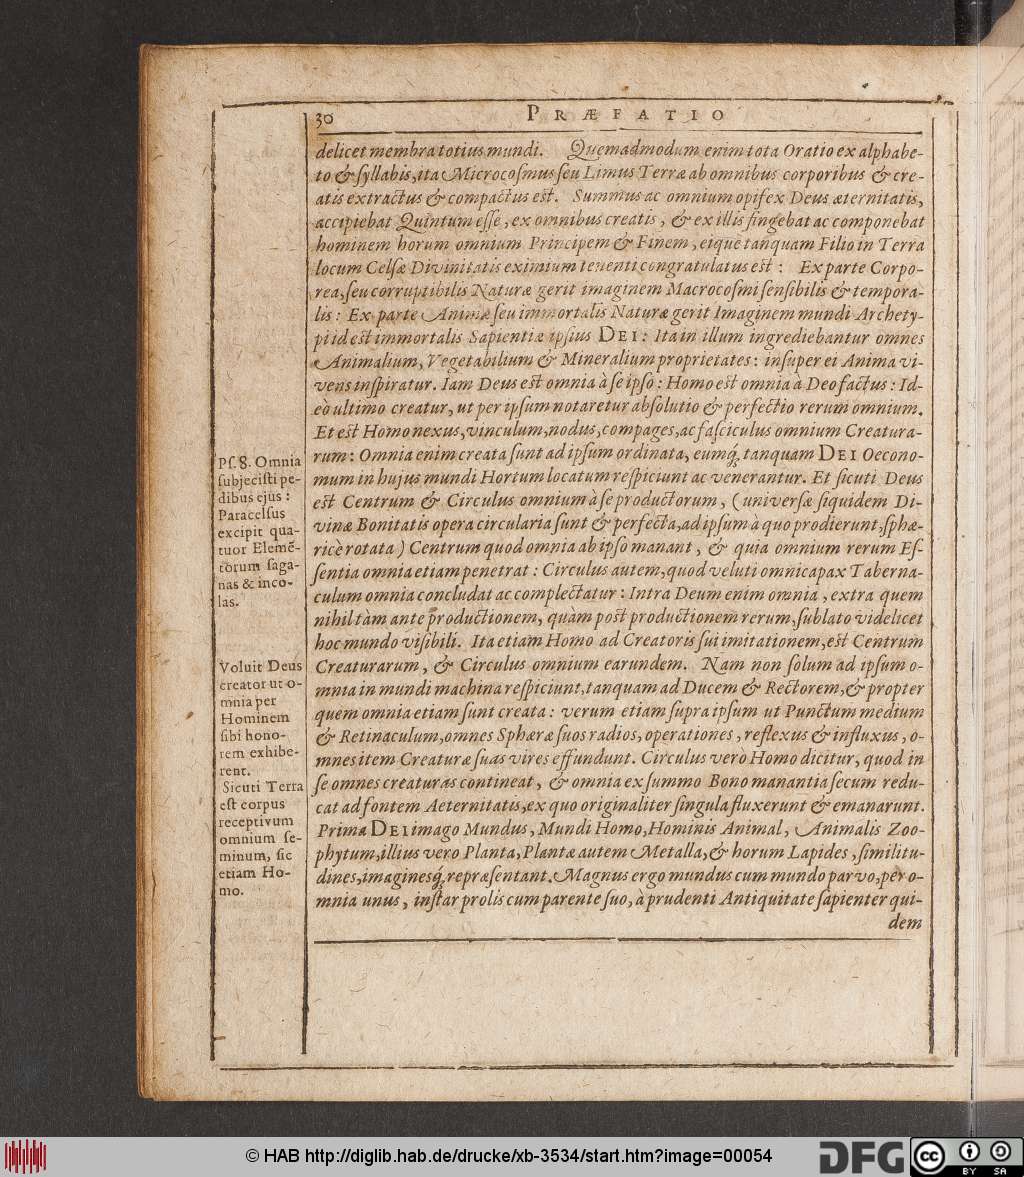 30
PRÆFATIO
delicet membra totius mundi. Quemadmodum enim tota Oratio ex alphabe-
to & ſyllabis, ita Microcoſmus ſeu Limus Terræ ab omnibus corporibus & cre-
atis extractus & compactus est. Summus ac omnium opifex Deus æternitatis,
accipiebat Quintum eſſe, ex omnibus creatis, & ex illis fingebat ac componebat
hominem horum omnium Principem & Finem, eique tanquam Filio in Terra
locum Celſæ Divinitatis eximium tenenti congratulatus est: Ex parte Corpo-
rea, ſeu corruptibilis Naturæ gerit imaginem Macrocoſmi ſenſibilis & tempora-
lis: Ex parte Animæ ſeu immortalis Naturæ gerit Imaginem mundi Archety-
pi id est immortalis Sapientiæ ipſius DEI: Ita in illum ingrediebantur omnes
Animalium, Vegetabilium & Mineralium proprietates: inſuper ei Anima vi-
vens inſpiratur. Iam Deus est omnia à ſe ipſo: Homo est omnia à Deo factus: Id-
eò ultimo creatur, ut per ipſum notaretur abſolutio & perfectio rerum omnium.
Et est Homo nexus, vinculum, nodus, compages, ac faſciculus omnium Creatura-
rum: Omnia enim creata ſunt ad ipſum ordinata, eumq́; tanquam DEI Oecono-
mum in hujus mundi Hortum locatum reſpiciunt ac venerantur. Et ſicuti Deus
est Centrum & Circulus omnium à ſe productorum, (univerſæ ſiquidem Di-
vinæ Bonitatis opera circularia ſunt & perfecta, ad ipſum à quo prodierunt, ſphæ-
ricè rotata) Centrum quod omnia ab ipſo manant, & quia omnium rerum Eſ-
ſentia omnia etiam penetrat: Circulus autem, quod veluti omnicapax Taberna-
culum omnia concludat ac complectatur: Intra Deum enim omnia, extra quem
nihil tàm ante productionem, quàm post productionem rerum, ſublato videlicet
hoc mundo viſibili. Ita etiam Homo ad Creatoris ſui imitationem, est Centrum
Creaturarum, & Circulus omnium earundem. Nam non ſolum ad ipſum o-
mnia in mundi machina reſpiciunt, tanquam ad Ducem & Rectorem, & propter
quem omnia etiam ſunt creata: verum etiam ſupra ipſum ut Punctum medium
& Retinaculum, omnes Sphæræ ſuos radios, operationes, reflexus & influxus, o-
mnes item Creaturæ ſuas vires effundunt. Circulus verò Homo dicitur, quod in
ſe omnes creaturas contineat, & omnia ex ſummo Bono manantia ſecum redu-
cat ad fontem Aeternitatis, ex quo originaliter ſingula fluxerunt & emanarunt.
Prima DEI imago Mundus, Mundi Homo, Hominis Animal, Animalis Zoo-
phytum, illius vero Planta, Plantæ autem Metalla, & horum Lapides, ſimilitu-
dines, imaginesq́; repræſentant. Magnus ergo mundus cum mundo parvo, per o-
mnia unus, inſtar prolis cum parente ſuo, à prudenti Antiquitate ſapienter qui-
dem
Pſ. 8. Omnia
ſubjeciſti pe-
dibus ejus:
Paracelſus
excipit qua-
tuor Elemē-
torum ſaga-
nas & inco-
las.
Voluit Deus
creator ut o-
mnia per
Hominem
ſibi hono-
rem exhibe-
rent.
Sicuti Terra
eſt corpus
receptivum
omnium ſe-
minum, ſic
etiam Ho-
mo.
© HAB http://diglib.hab.de/drucke/xb-3534/start.htm?image=00054
DFG
cc
BY SA